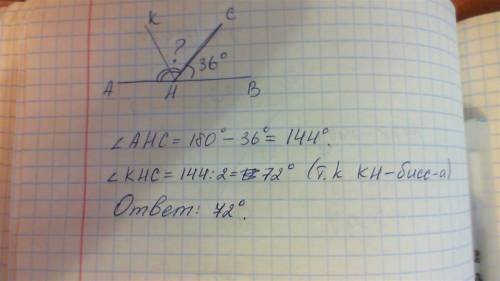 K C
?
36°
A H B
∠AHC = 180° - 36° = 144°.
∠KHC = 144 : 2 = 72° (т.к KH-бисс-а)
Ответ: 72°.